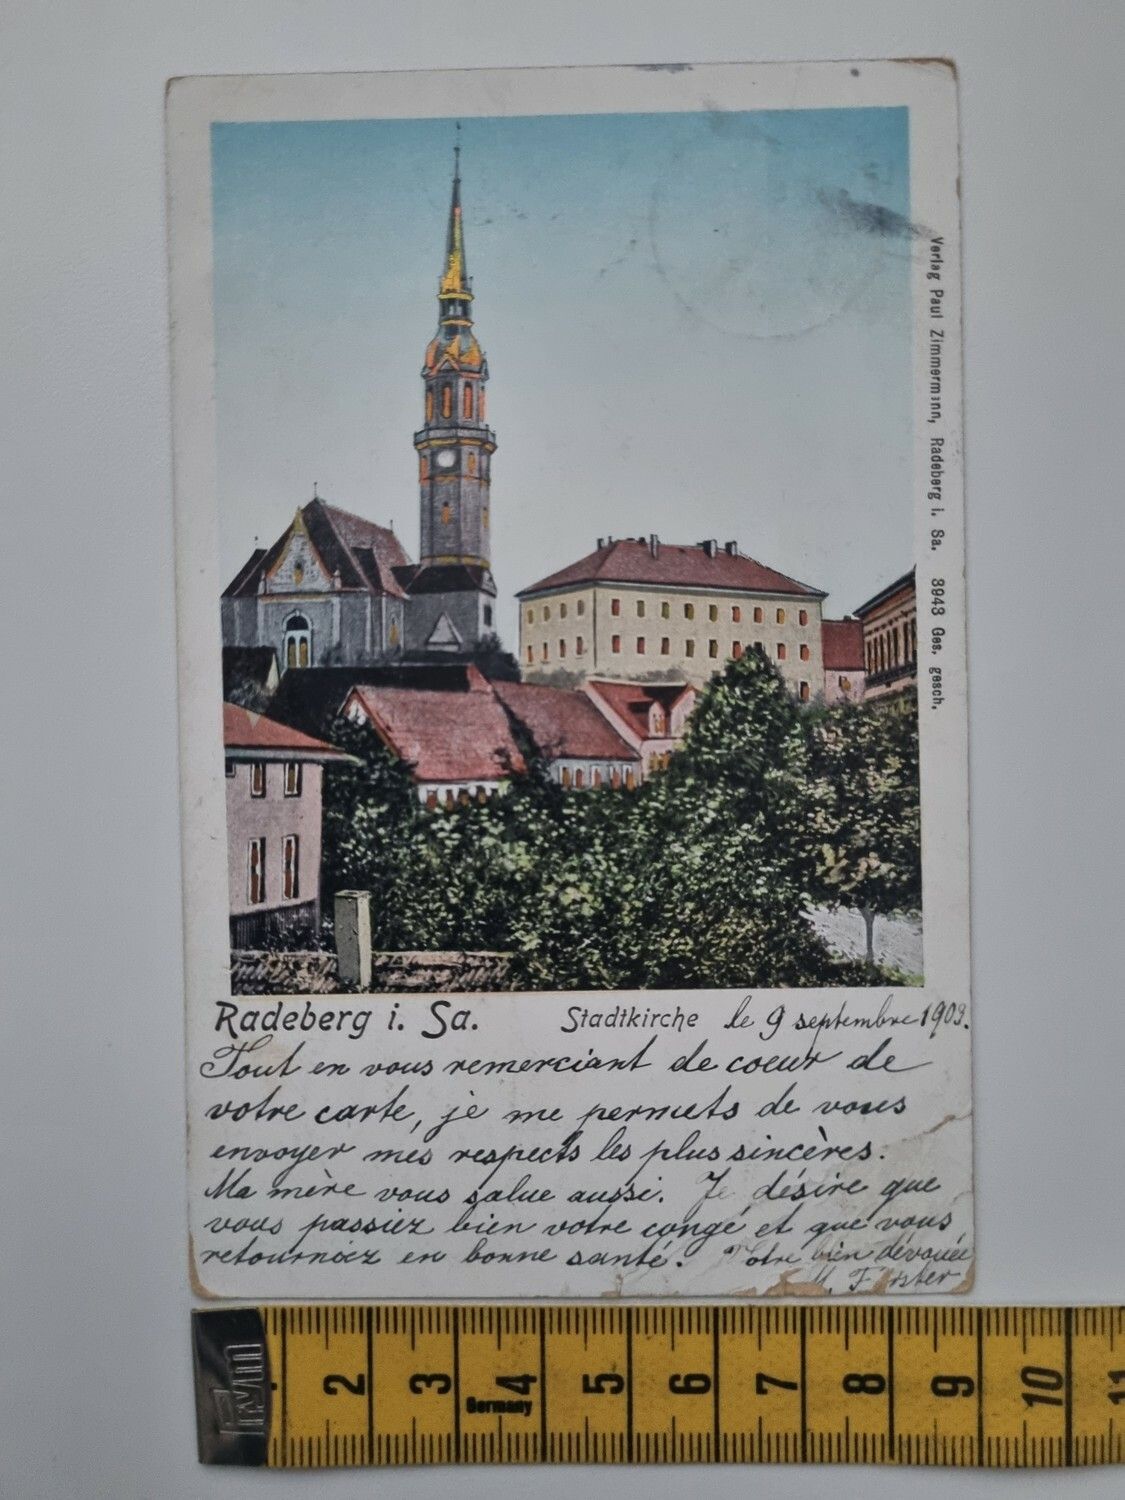 Verlag Paul Zimmermann, Radeberg i. Sa. 3943 Ges. gesch.
Radeberg i. Sa. Stadtkirche le 9 septembre 1903.
Tout en vous remerciant de coeur de
votre carte, je me permets de vous
envoyer mes respects les plus sincères.
Ma mère vous salue aussi. Je désire que
vous passiez bien votre congé et que vous
retourniez en bonne santé. Votre bien dévouée
M. Förster
2 3 4 5 6 7 8 9 10 11
Germany